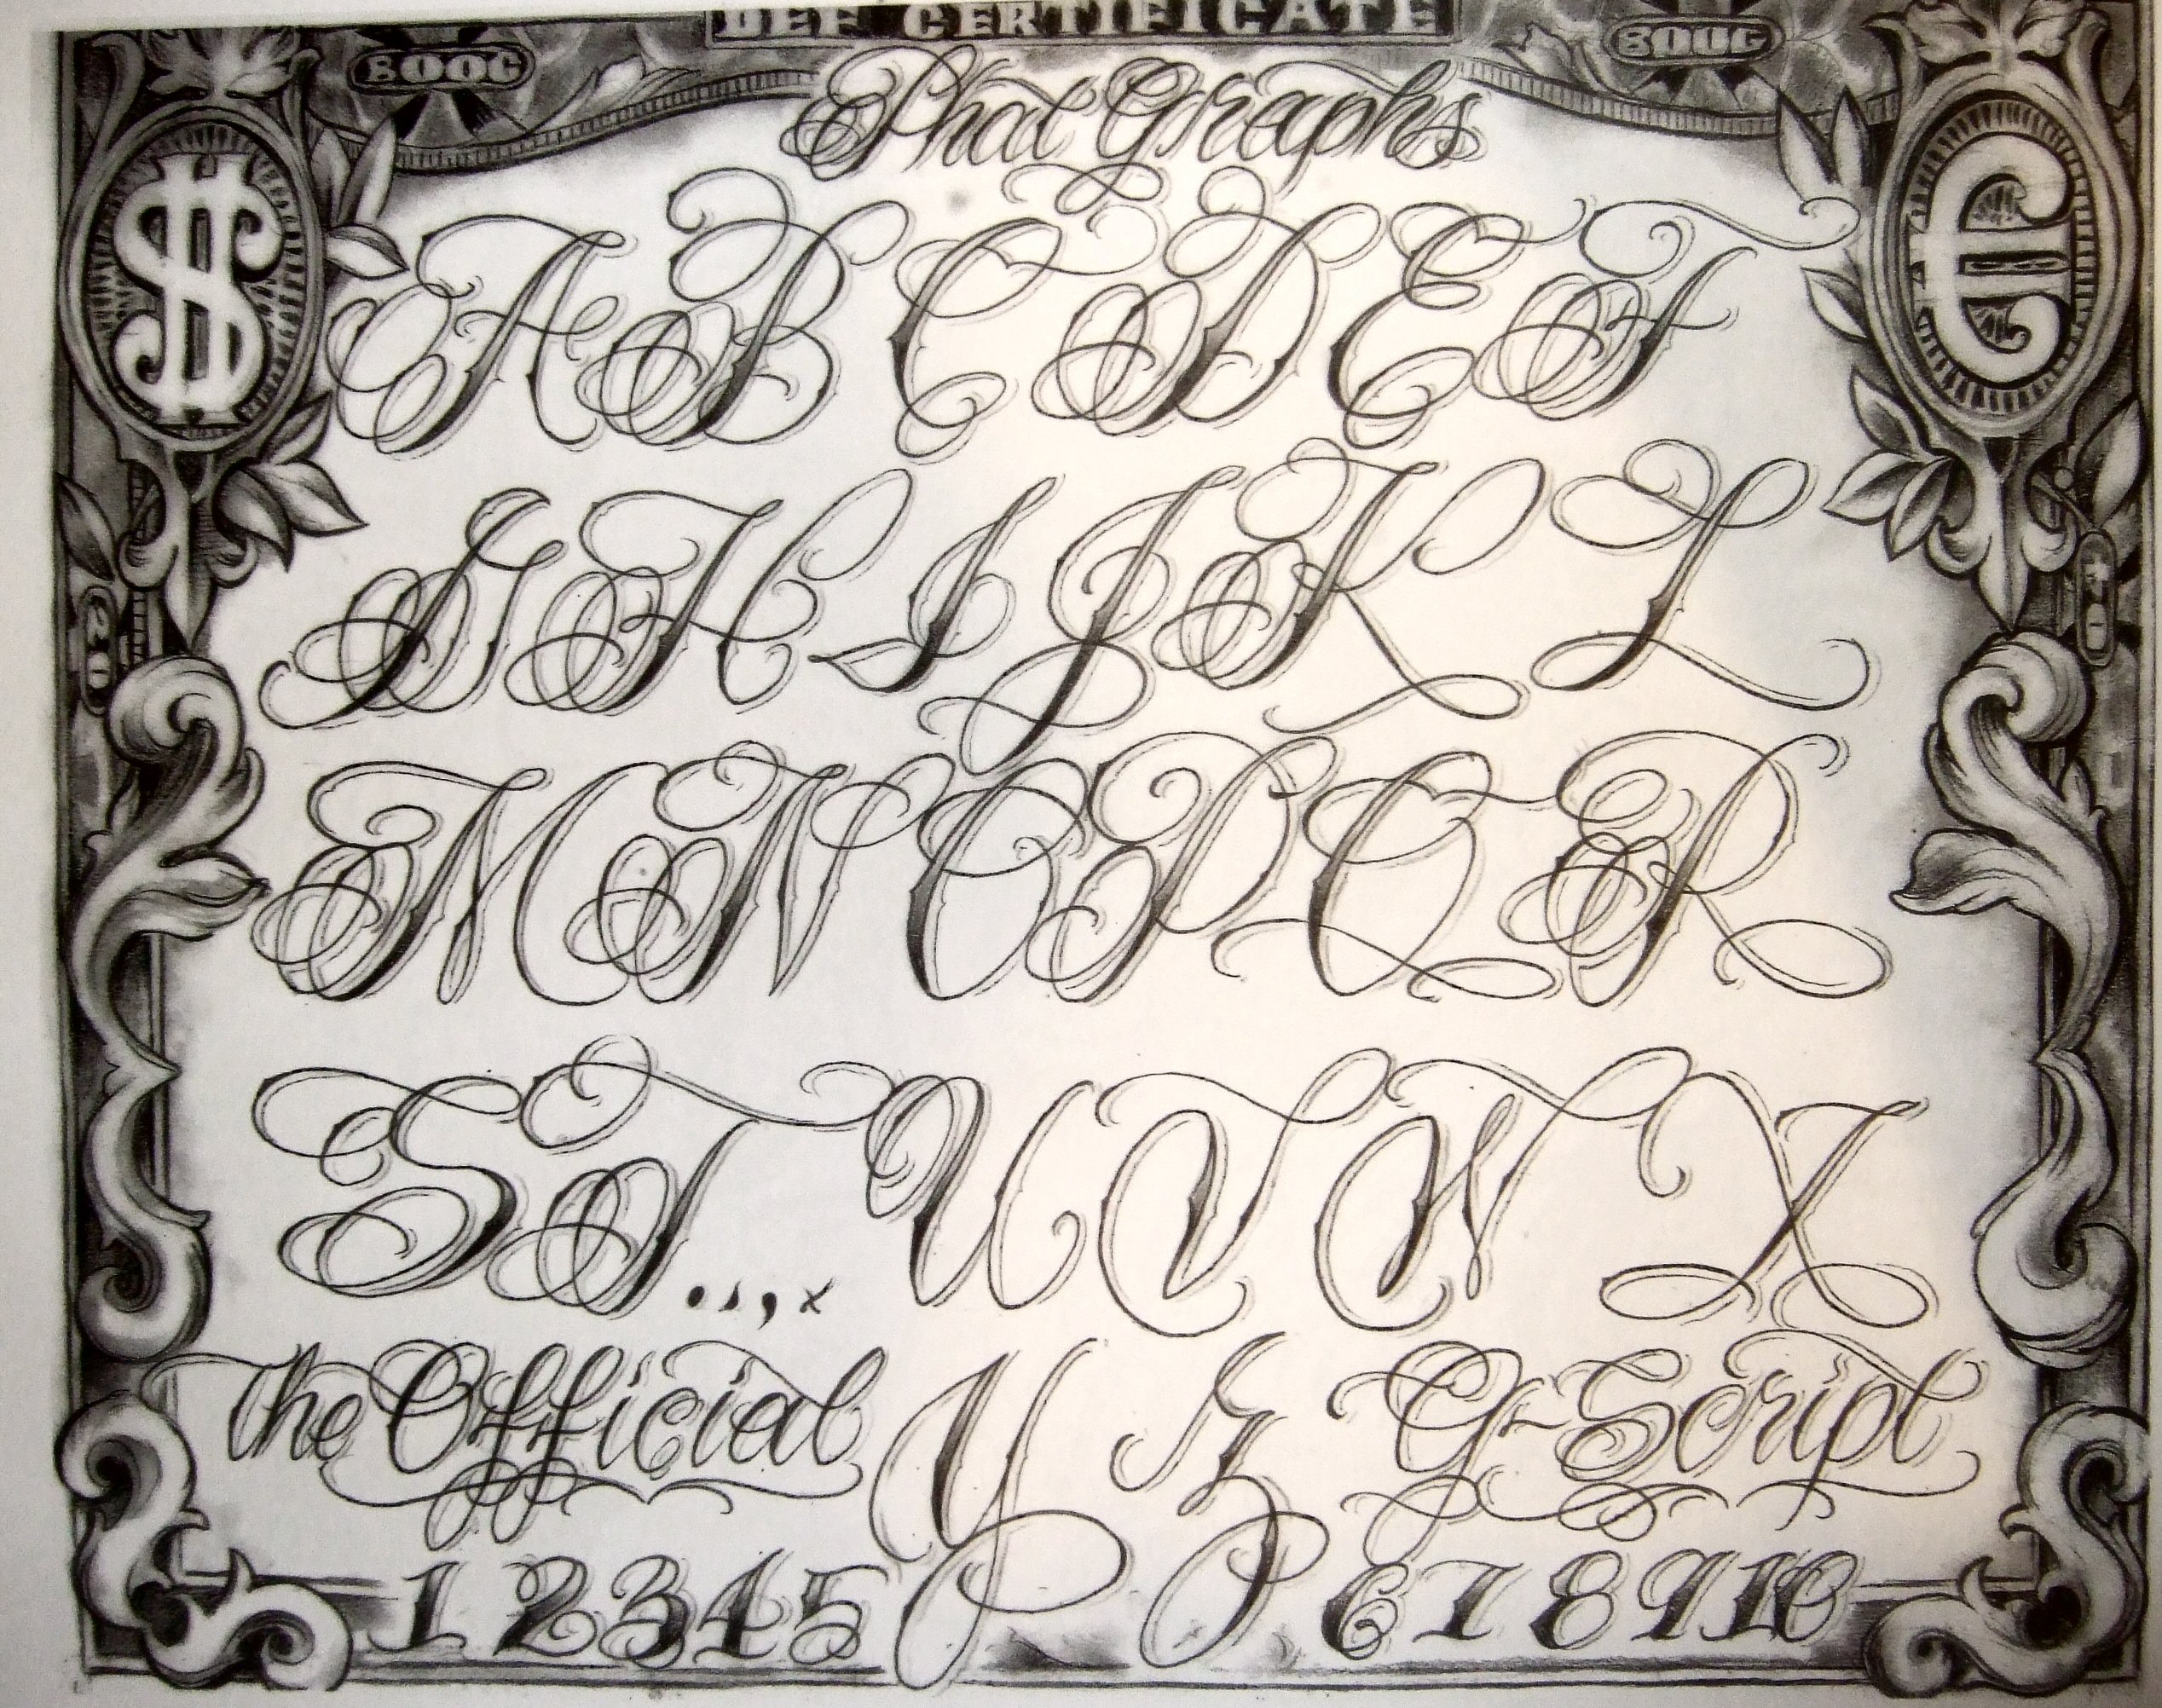 DEF CERTIFICATE
BOOG BOOG
Phat Graphs
A B C D E F
G H I J K L
M N O P Q R
S T . , , x U V W X
The Official Y Z G-Script
1 2 3 4 5 6 7 8 9 10